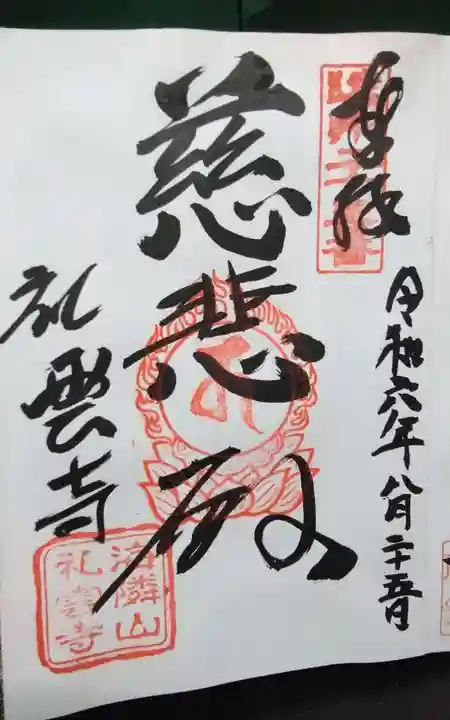 奉拝
令和六年八月二十五日
慈悲殿
礼雲寺
海隣山
礼雲寺